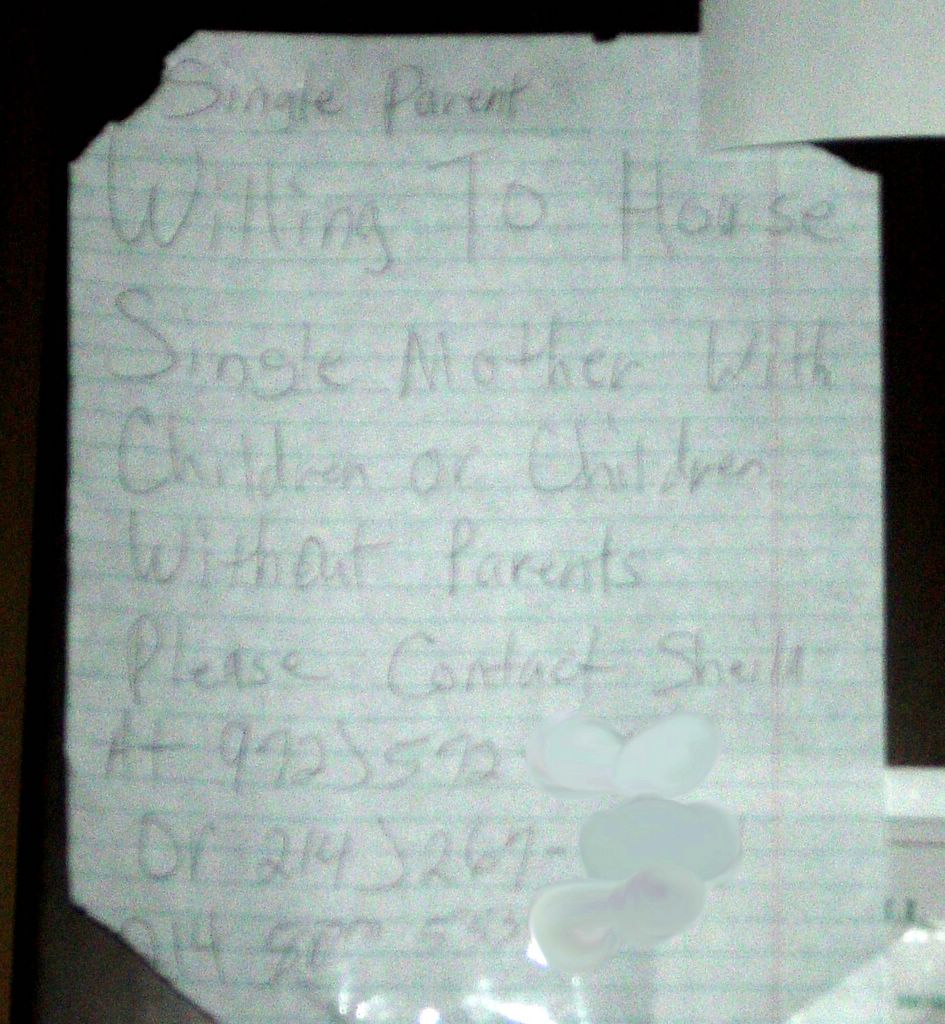 Single Parent
Willing To House
Single Mother With
Children or Children
Without Parents
Please Contact Sheila
At 972)572-
Or 214)267-
214